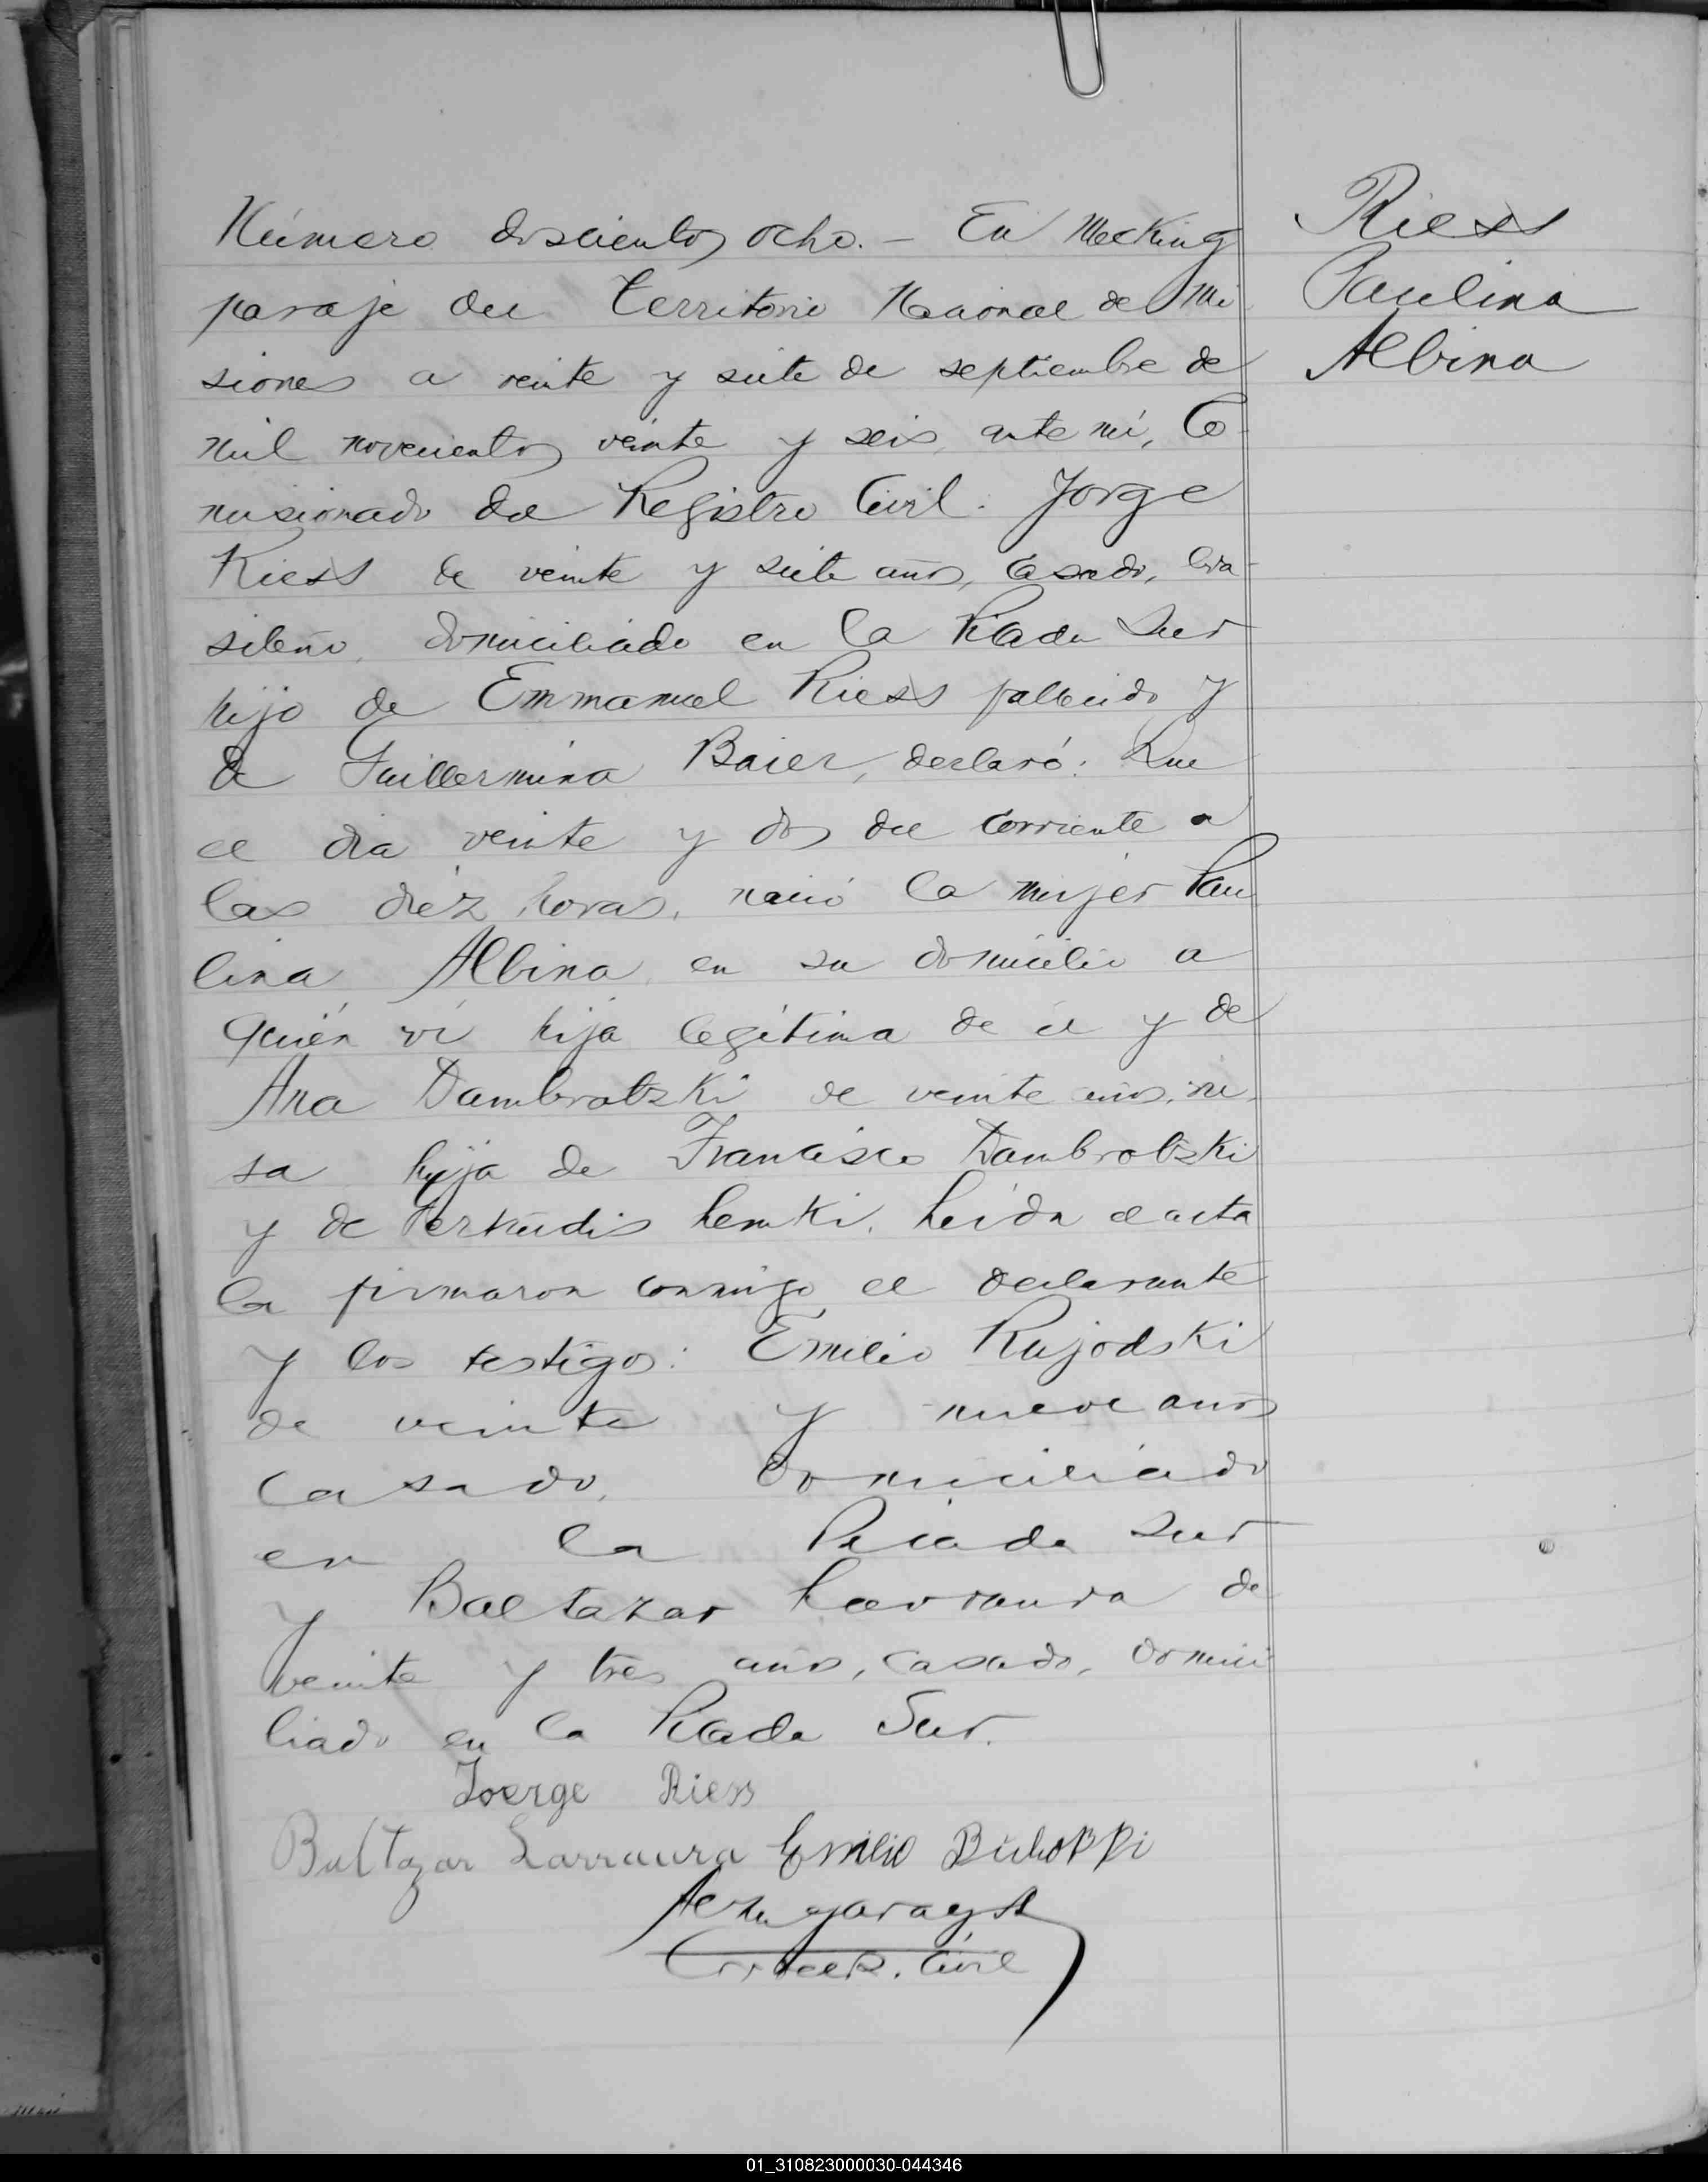 Número doscientos ocho. – En Mecking
paraje del Territorio Nacional de Mi
siones a veinte y siete de septiembre de
mil novecientos veinte y seis, ante mí, Co-
misionado del Registro Civil. Jorge
Riess de veinte y siete años, casado, bra-
sileño, domiciliado en la Picada Sur
hijo de Emmanuel Riess fallecido y
de Guillermina Baier, declaró: Que
el dia veinte y dos del corriente a
las diéz horas, nació la mujer Pau
lina Albina en su domicilio a
quién ví hija legítima de él y de
Ana Dambrotzki de veinte años, ru-
sa hija de Francisco Dambrotzki
y de Gertrudis Lemki. Leída el acta
la firmaron conmigo el declarante
y los testigos: Emilio Rujodski
de veinte y nueve años
casado, domiciliado
en la Picada Sur
y Baltazar Larraura de
veinte y tres años, casado, domici
liado en la Picada Sur.
Joerge Riess
Baltazar Larraura Emilio
Civil
Riess
Paulina
Albina
01_310823000030-044346